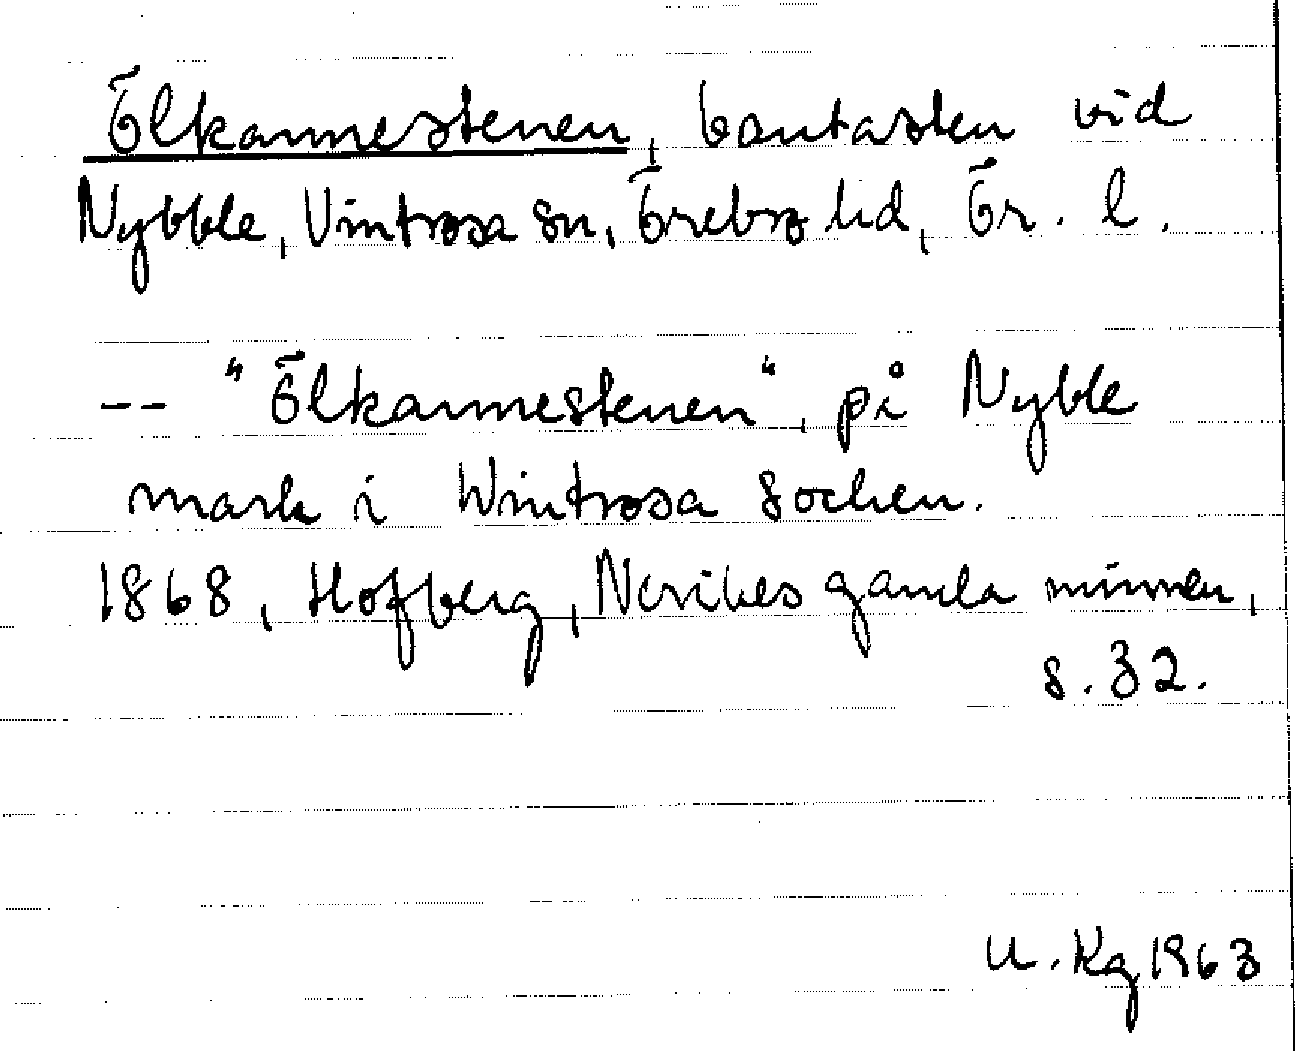 Ölkannestenen, bautasten vid
Nybble, Vintrosa sn, Örebro hd, Ör. l.
-- "Ölkannestenen", på Nyble
mark i Wintrosa socken.
1868, Hofberg, Nerikes gamla minnen,
s. 32.
U. Kg 1963